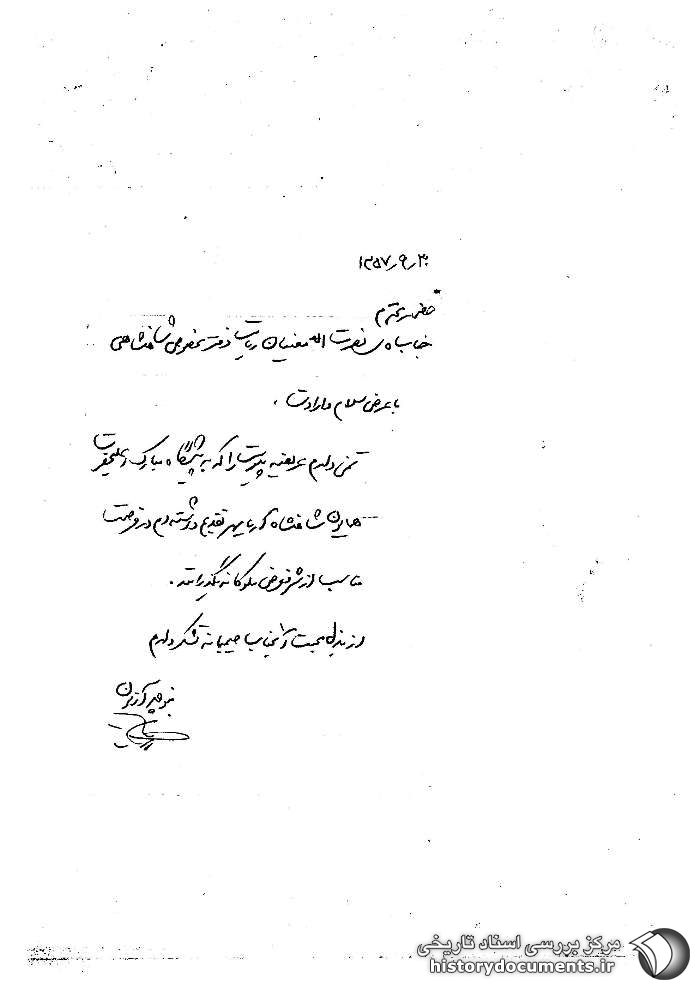 ۱۳۵۷/۹/۲۰
حضور محترم
جناب آقای نصرت اله معینیان ریاست دفتر مخصوص شاهنشاهی
با عرض سلام و ارادت ،
تمنی دارم عریضه پیوست را که به پیشگاه مبارک اعلیحضرت
همایون شاهنشاه آریامهر تقدیم داشته‌ام در فرصت
مناسب از شرفعرض ملوکانه بگذرانند .
از بذل محبت آنجناب صمیمانه تشکر دارم
منوچهر آزمون
مرکز بررسی اسناد تاریخی
historydocuments.ir